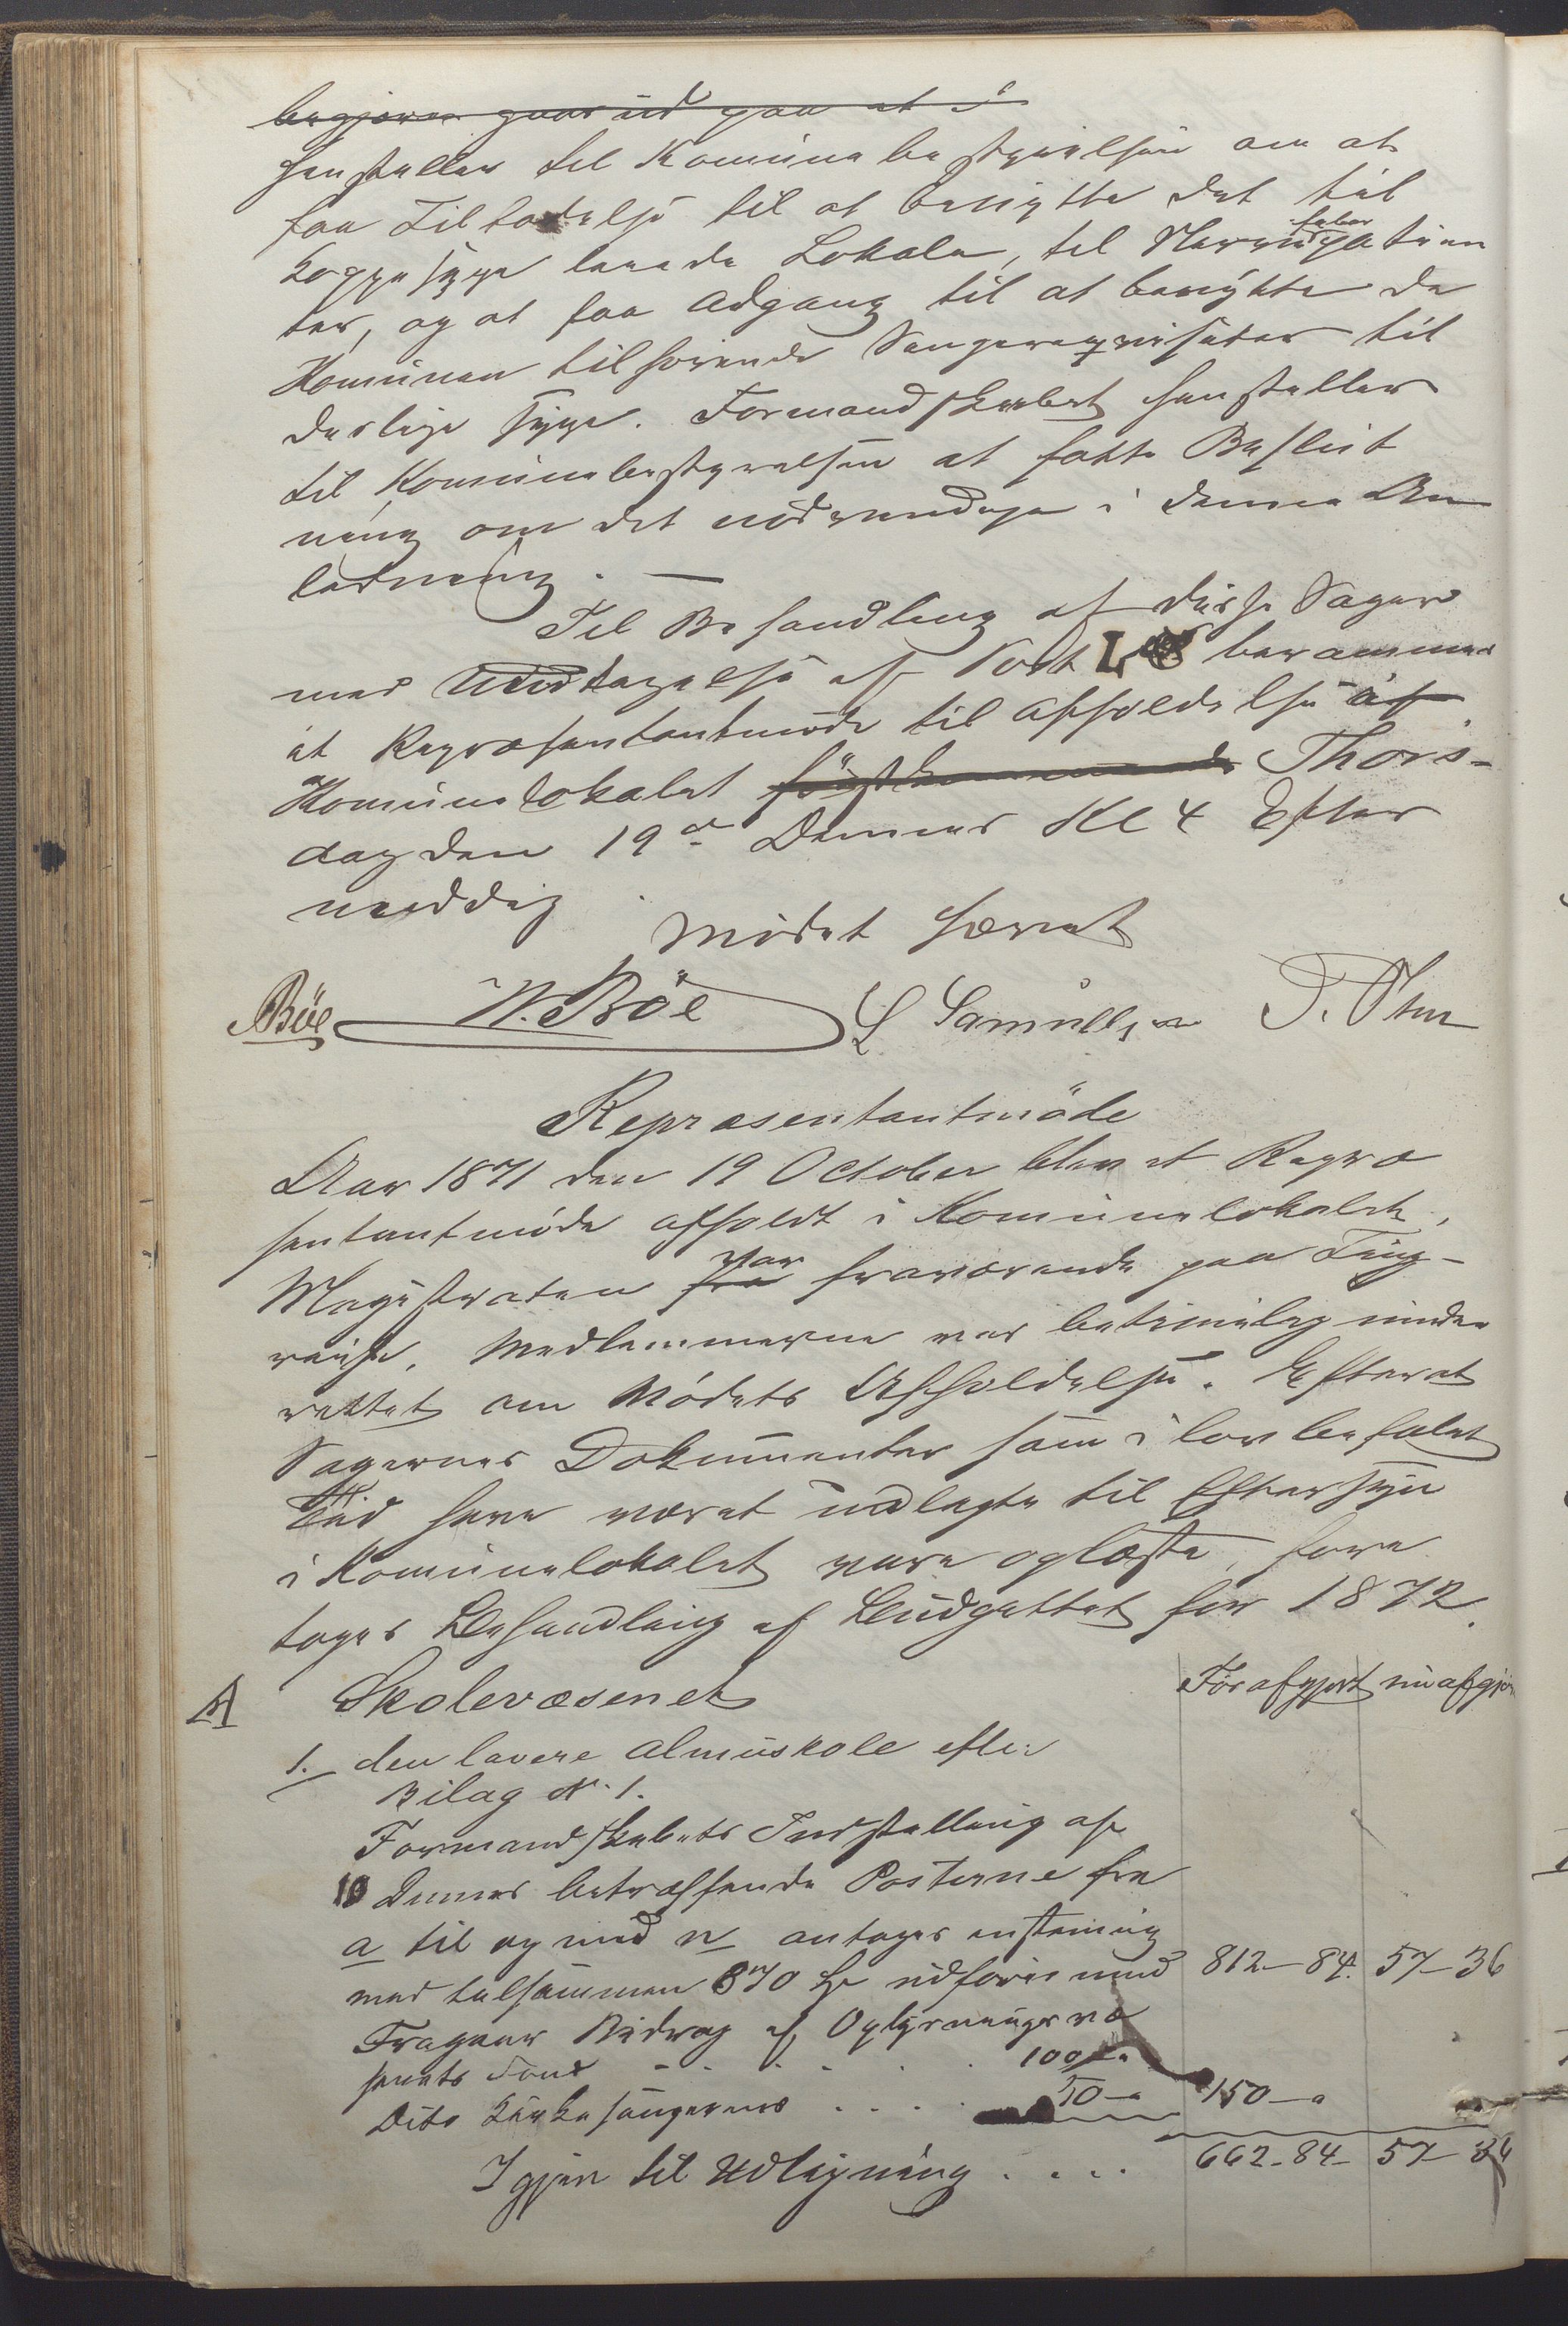 begjæres gaar ud paa at i
henstiller til Komunebestyrelsen om at
faa Tilladelse til at benytte det til
Koppesyge leiede Lokale, til Nervefeberpatien
ter, og at faa Adgang til at benytte de
Komunen tilhørende Sengereqvisiter til
deslige syge. Formandskabet henstiller
til Komunebestyrelsen at fatte Beslut
ning om det nødvendige i denne An
ledning. —
Til Behandling af disse Sager
med Undtagelse af Post L berammes
et Repræsentantmøde til Afholdelse af
Komunelokalet førstkommende Thors-
dag den 19de Dennes Kl 4 Efter
middag
Mødet hævet
Böe W. Böe L Samuelsen
Repræsentantmöde
Aar 1871 den 19 October blev et Repræ
sentantmøde afholdt i Komunelokalet,
Magistraten fra var fraværende paa Ting-
reise. Medlemmerne var betimelig under
rettet om Mødets Afholdelse. Efterat
Sagernes Dokumenter som i lovbefalet
Tid have været udlagte til Eftersyn
i Komunelokalet vare oplæste, fore
toges Behandling af Budgettet for 1872.
A Skolevæsenet Før afgjort nu afgjor
1. den lavere Almuskole efter
Bilag N. 1.
Formandskabets Indstilling af
10 Dennes betræffende Posterne fra
a til og med n antoges enstemig
med tilsammen 870 Sp udføres med 812–84. 57–36
Fragaar Bidrag af Oplysningsvæ
senets Fond . . . . . 100 –„
Dito Kirkesangernes . . . . 50 –„ 150 –„
Igjen til Udligning . . . . 662–84– 57–36